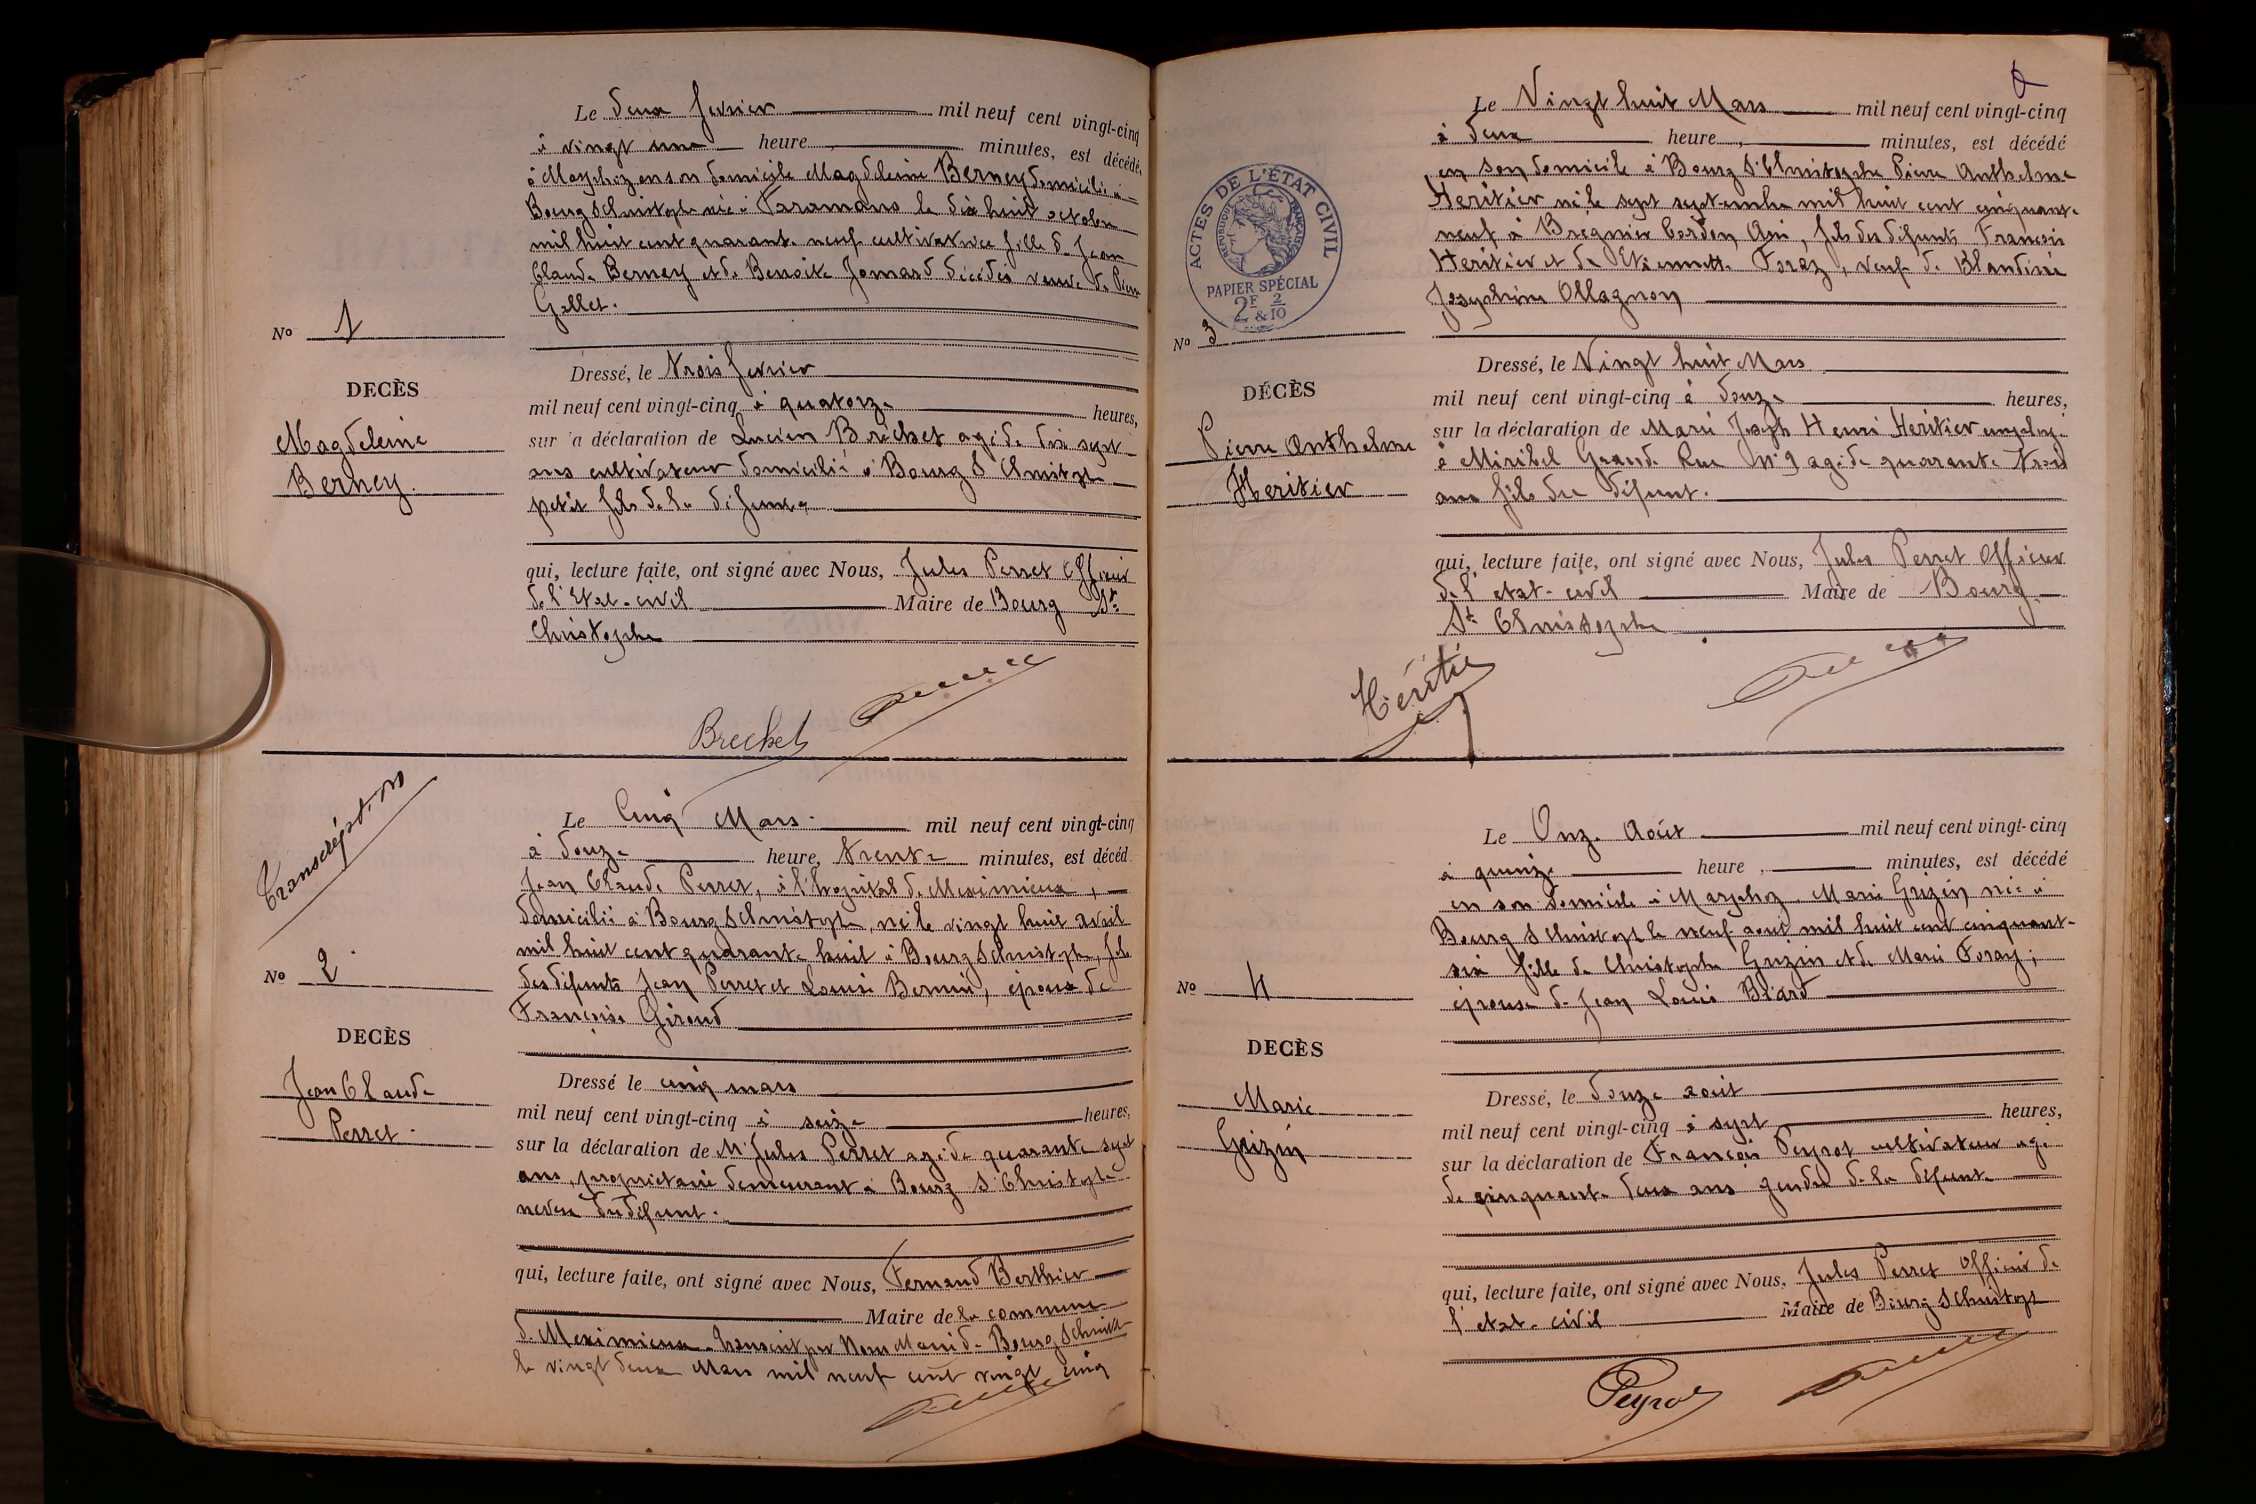 Le deux fevrier mil neuf cent vingt-cinq
à vingt une heure , minutes, est décédé,
à Marphoz en son domicile Magdeleine Berney domiciliée à
Bourg S Christophe née à Faramans le dix huit octobre
mil huit cent quarante neuf cultivatrice fille de Jean
Claude Berney et de Benoite Jomard décédés veuve de Pierre
Gallet.
No 1
DECÈS
Magdeleine
Berney.
Dressé, le trois fevrier
mil neuf cent vingt-cinq à quatorze heures,
sur la déclaration de Lucien Bréchet agé de dix sept
ans cultivateur domicilié à Bourg S Christophe
petit fils de la défunte
qui, lecture faite, ont signé avec Nous, Jules Perret Officier
de l'Etat-civil Maire de Bourg St
Christophe
Brechet
Transcription
Le Cinq Mars. mil neuf cent vingt-cinq
à douze heure, trente minutes, est décéd
Jean Claude Perret, à l'hopital de Meximieux,
domicilié à Bourg S Christophe, né le vingt huit avril
mil huit cent quarante huit à Bourg S Christophe, fils
des défunts Jean Perret et Louise Bernin, époux de
Françoise Giroud
No 2
DECÈS
Jean Claude
Perret.
Dressé le cinq mars
mil neuf cent vingt-cinq à seize heures,
sur la déclaration de Mr Jules Perret agé de quarante sept
ans, propriétaire demeurant à Bourg St Christophe
neveu du défunt.
qui, lecture faite, ont signé avec Nous, Fernand Berthier
Maire de la commune
de Meximieux. Transcrit par Nous Maire de Bourg S Christ
le vingt deux Mars mil neuf cent vingt cinq
Le Vingt huit Mars mil neuf cent vingt-cinq
à deux heure , minutes, est décédé
en son domicile à Bourg S Christophe Pierre Anthelme
Heritier né le sept septembre mil huit cent cinquante
neuf à Bregnier Cordon Ain, fils des défunts François
Heritier et de Etiennette Foraz, veuf de Blandine
Josephine Ollagnon
ACTES DE L'ÉTAT CIVIL
RÉPUBLIQUE FRANÇAISE
PAPIER SPÉCIAL
2F 2
& 10
No 3
DÉCÈS
Pierre Anthelme
Heritier
Dressé, le Vingt huit Mars
mil neuf cent vingt-cinq à douze heures,
sur la déclaration de Marie Joseph Henri Heritier employé
à Miribel Grande Rue N° 9 agé de quarante trois
ans fils du défunt.
qui, lecture faite, ont signé avec Nous, Jules Perret Officier
de l'etat-civil Maire de Bourg
St Christophe
Héritier
Le Onze Août mil neuf cent vingt-cinq
à quinze heure , minutes, est décédé
en son domicile à Marphoz Marie Grizin née à
Bourg S Christophe le neuf aout mil huit cent cinquante
six fille de Christophe Grizin et de Marie Foray;
épouse de Jean Louis Blard
No 4
DECÈS
Marie
Grizin
Dressé, le douze aout
mil neuf cent vingt-cinq à sept heures,
sur la déclaration de François Peyrot cultivateur agé
de cinquante deux ans gendre de la défunte
qui, lecture faite, ont signé avec Nous, Jules Perret Officier de
l'etat-civil Maire de Bourg S Christoph
Peyrot